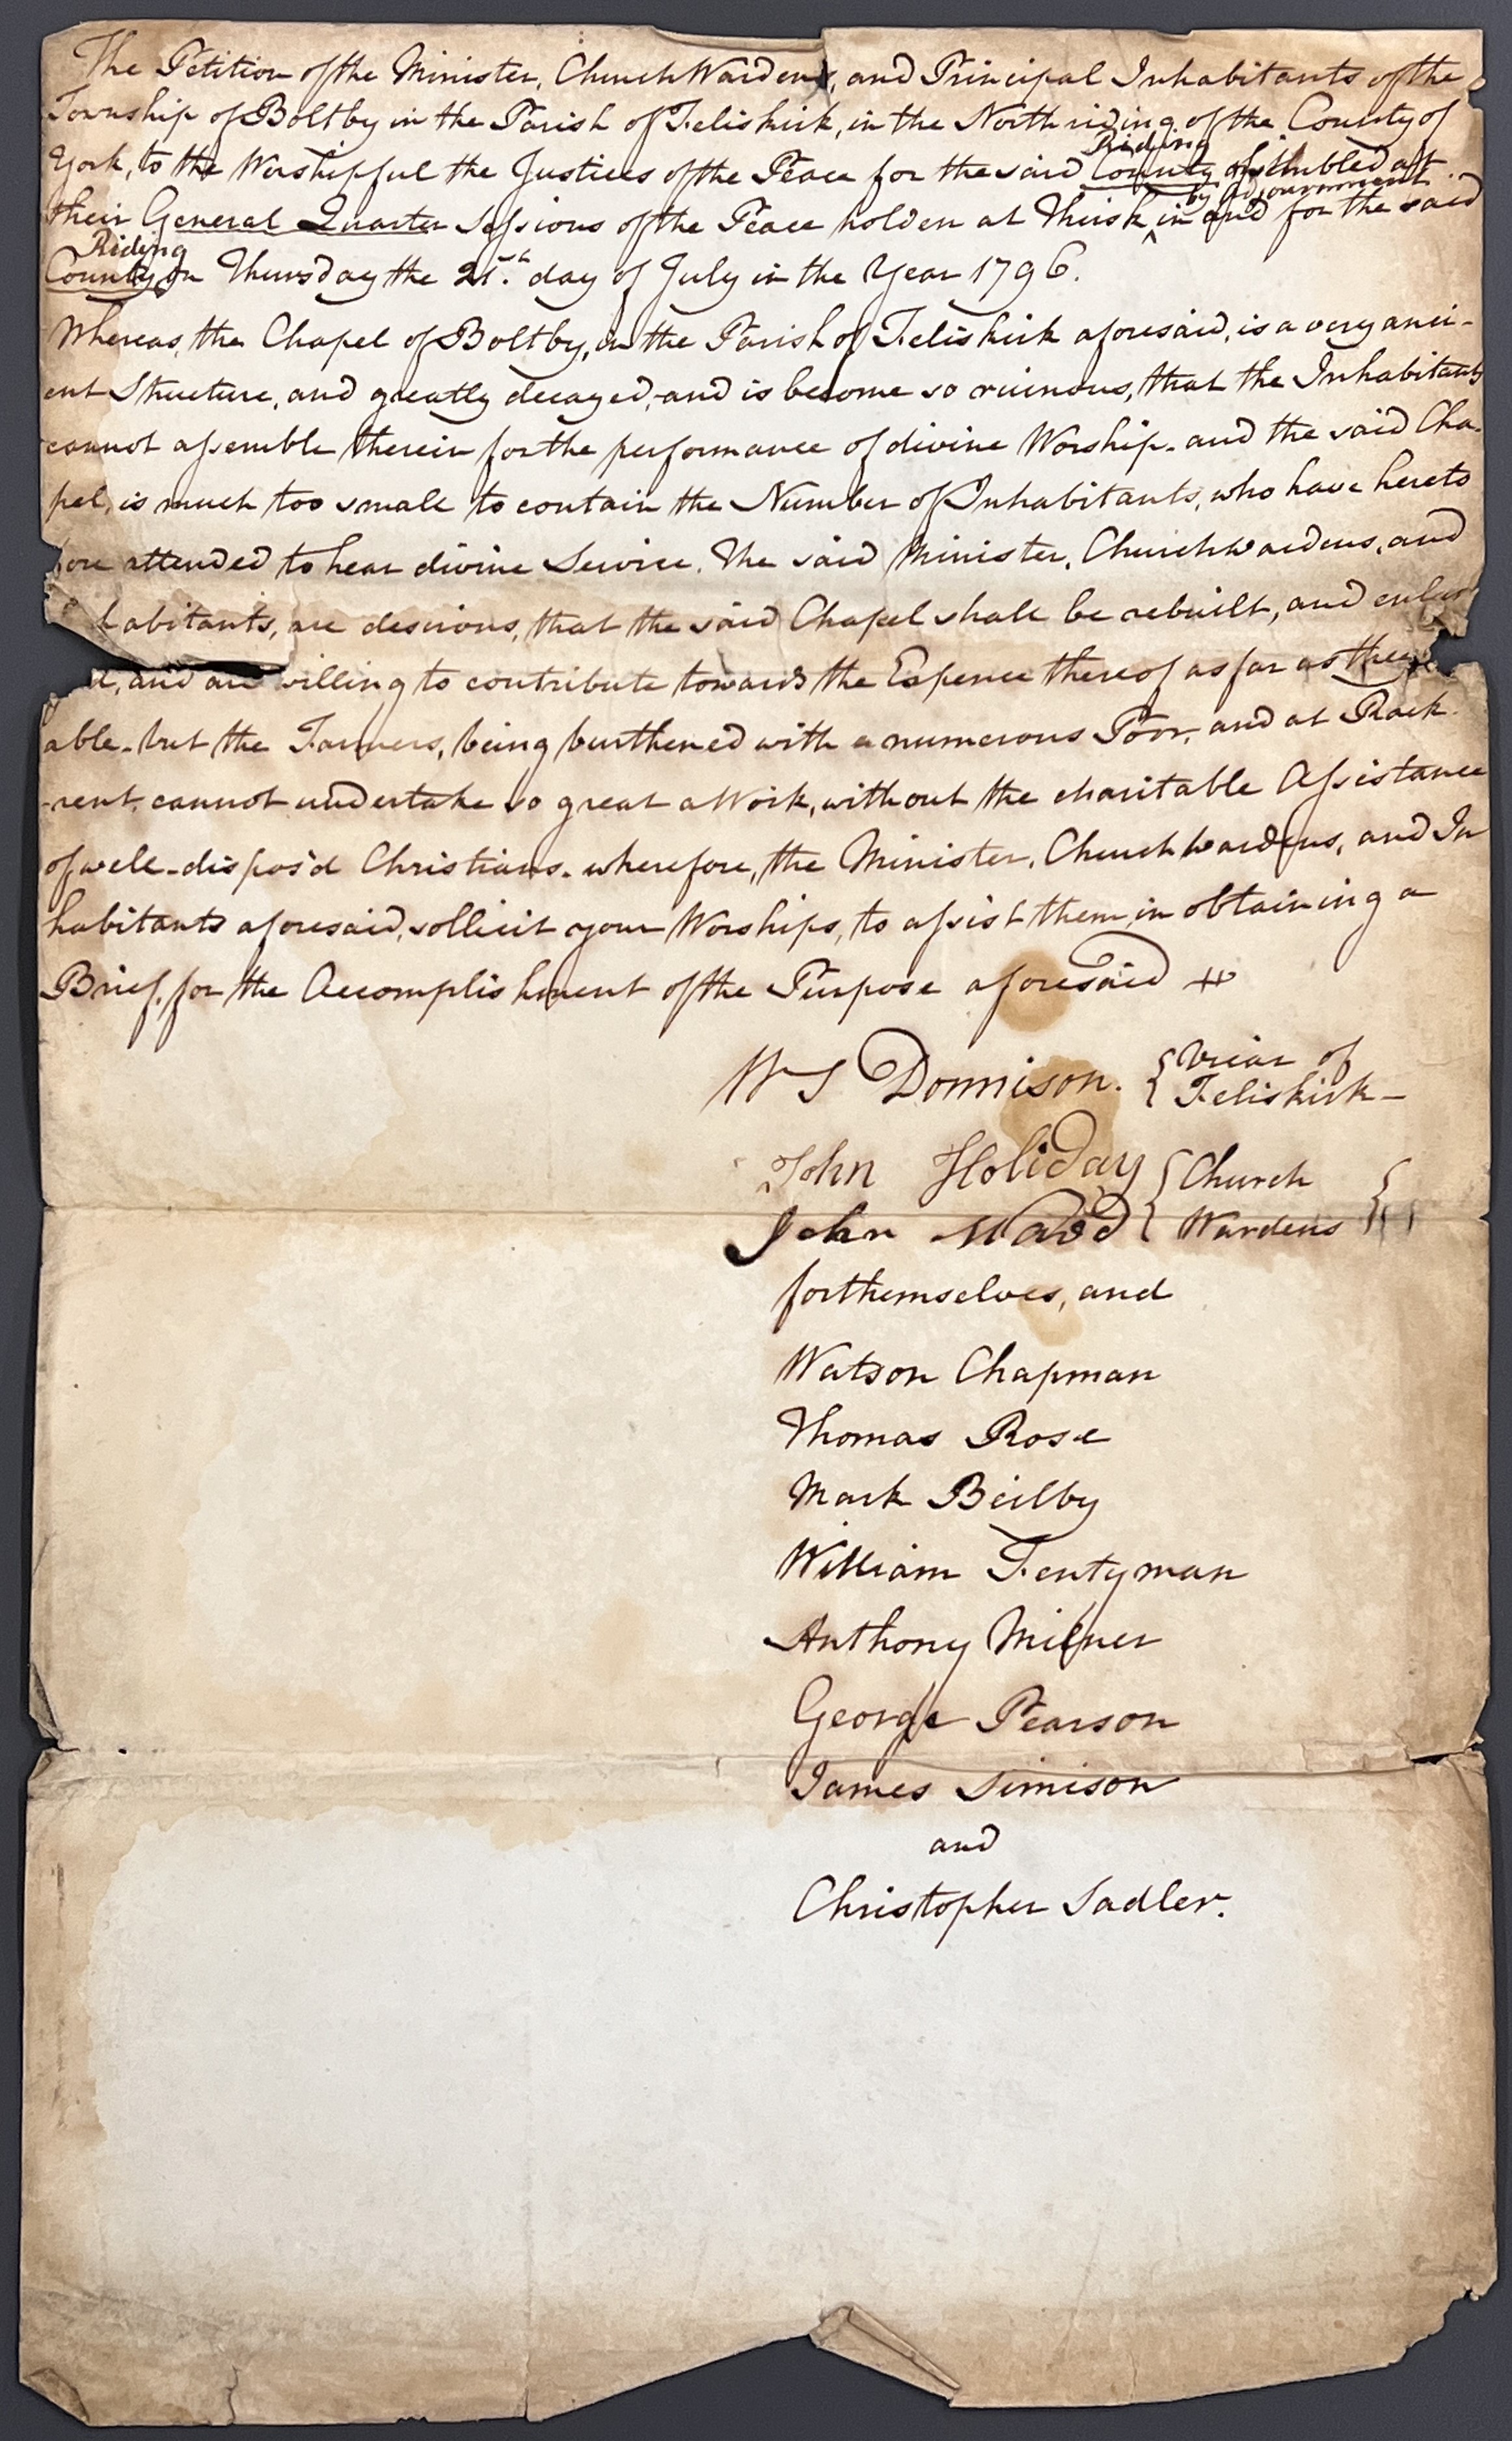 The Petition of the Minister, Church Wardens, and Principal Inhabitants of the
Township of Boltby in the Parish of Feliskirk, in the North riding of the County of
Riding
York, to the Worshipful the Justices of the Peace for the said County assembled at
by adjournment
their General Quarter Sessions of the Peace holden at Thirsk ^ in and for the said
Riding
County on Thursday the 21st. day of July in the Year 1796.
Whereas, the Chapel of Boltby, in the Parish of Feliskirk aforesaid, is a very anci-
ent Structure, and greatly decayed, and is become so ruinous, that the Inhabitants
cannot assemble therein for the performance of divine Worship. and the said Cha-
pel, is much too small to contain the Number of Inhabitants, who have hereto
fore attended to hear divine Service. The said Minister, Churchwardens, and
habitants, are desirous, that the said Chapel shall be rebuilt, and enlar
d, and are willing to contribute towards the Expence thereof as far as they
able. but the Farmers, being burthened with a numerous Poor, and at Rack
-rent, cannot undertake so great a Work, without the charitable Assistance
of well-dispos'd Christians. wherefore, the Minister, Churchwardens, and In
habitants aforesaid, sollicit your Worships, to assist them, in obtaining a
Brief, for the Accomplishment of the Purpose aforesaid
W S Donnison. { Vicar of
Feliskirk -
John Holiday { Church
John Ward { Wardens }
for themselves, and
Watson Chapman
Thomas Rose
Mark Beilby
William Fentyman
Anthony Milner
George Pearson
James Simison
and
Christopher Sadler.